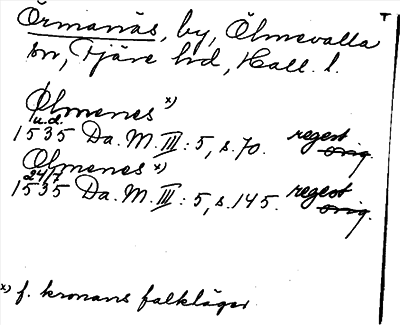 Örmanäs, by, Ölmevalla
sn, Fjäre hd, Hall. l.
T
Ølmenes x)
u.d.
1535 Da. M. III: 5, s. 70. regest orig.
Olmenes x)
24/7
1535 Da. M. III: 5, s. 145. regest orig.
x) f. kronans falkläger